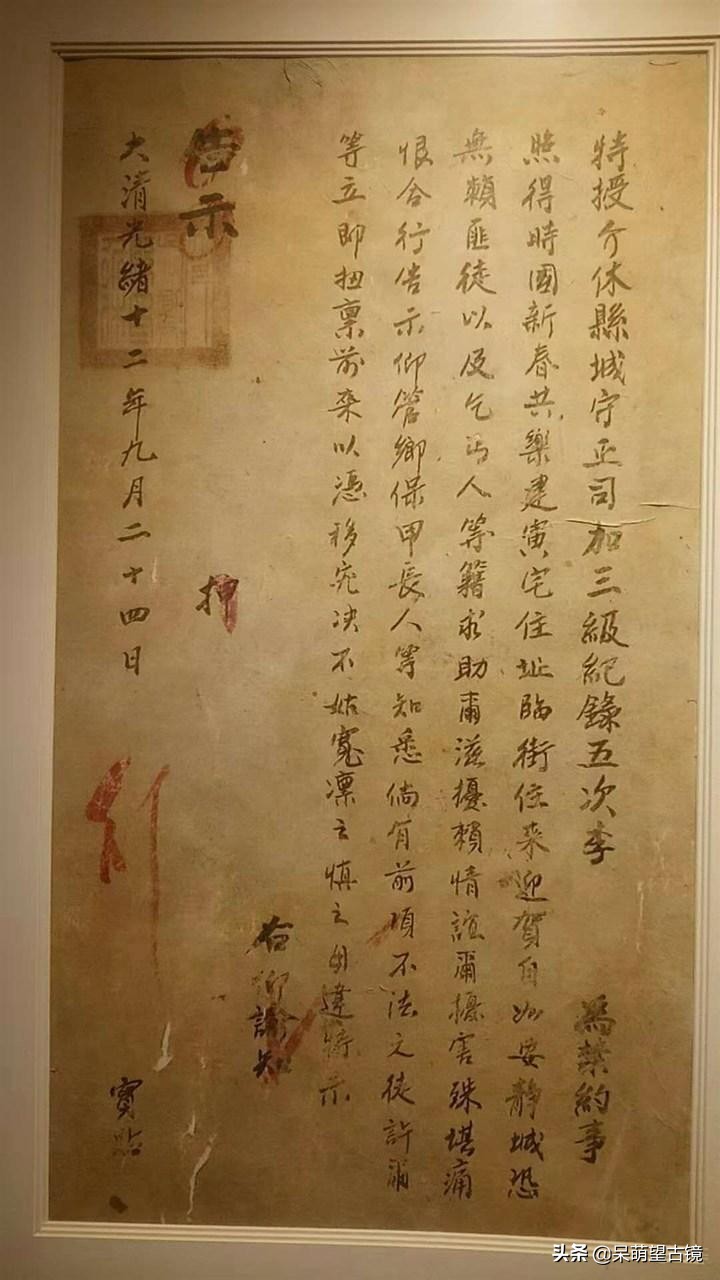 特授介休縣城守正司加三級紀錄五次李 為禁約事
照得時國新春共樂建寅宅住址臨街住来迎賀自如安靜城恐
無賴匪徒以及乞丐人等籍求助甭滋擾賴情誼爾擾害殊堪痛
恨合行告示仰管鄉保甲長人等知悉倘有前項不法之徒許爾
等立即扭禀前来以憑移究决不姑寬凛之慎之毋違特示
右仰諭知
告示 押
大清光緒十二年九月二十四日
實貼
头条 @呆萌望古镜